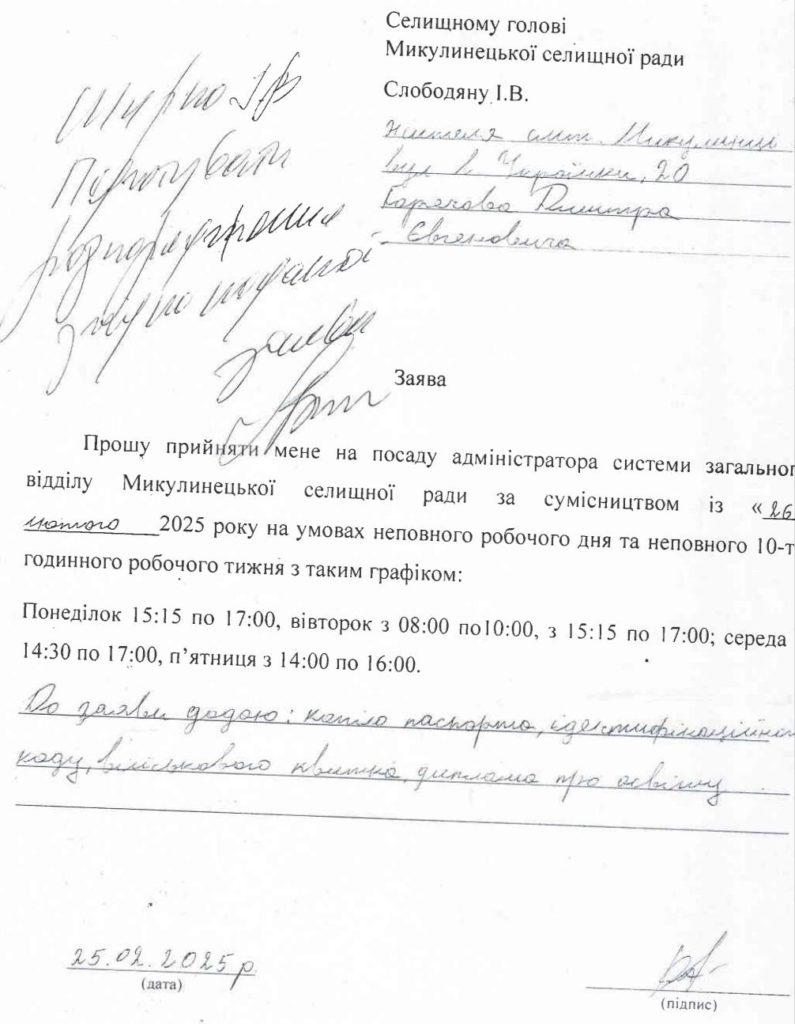 Селищному голові
Микулинецької селищної ради
Слободяну І.В.
жителя смт. Микулинці
вул Л. Українки, 20
Дмитра
Євгеновича
Підготувати
розпорядження
згідно поданої
заяви
Заява
Прошу прийняти мене на посаду адміністратора системи загальног
відділу Микулинецької селищної ради за сумісництвом із «26
лютого 2025 року на умовах неповного робочого дня та неповного 10-т
годинного робочого тижня з таким графіком:
Понеділок 15:15 по 17:00, вівторок з 08:00 по10:00, з 15:15 по 17:00; середа
14:30 по 17:00, п’ятниця з 14:00 по 16:00.
До заяви додаю: копію паспорта, ідентифікаційного
коду, військового квитка, диплома про освіту
25.02.2025р
(дата)
(підпис)